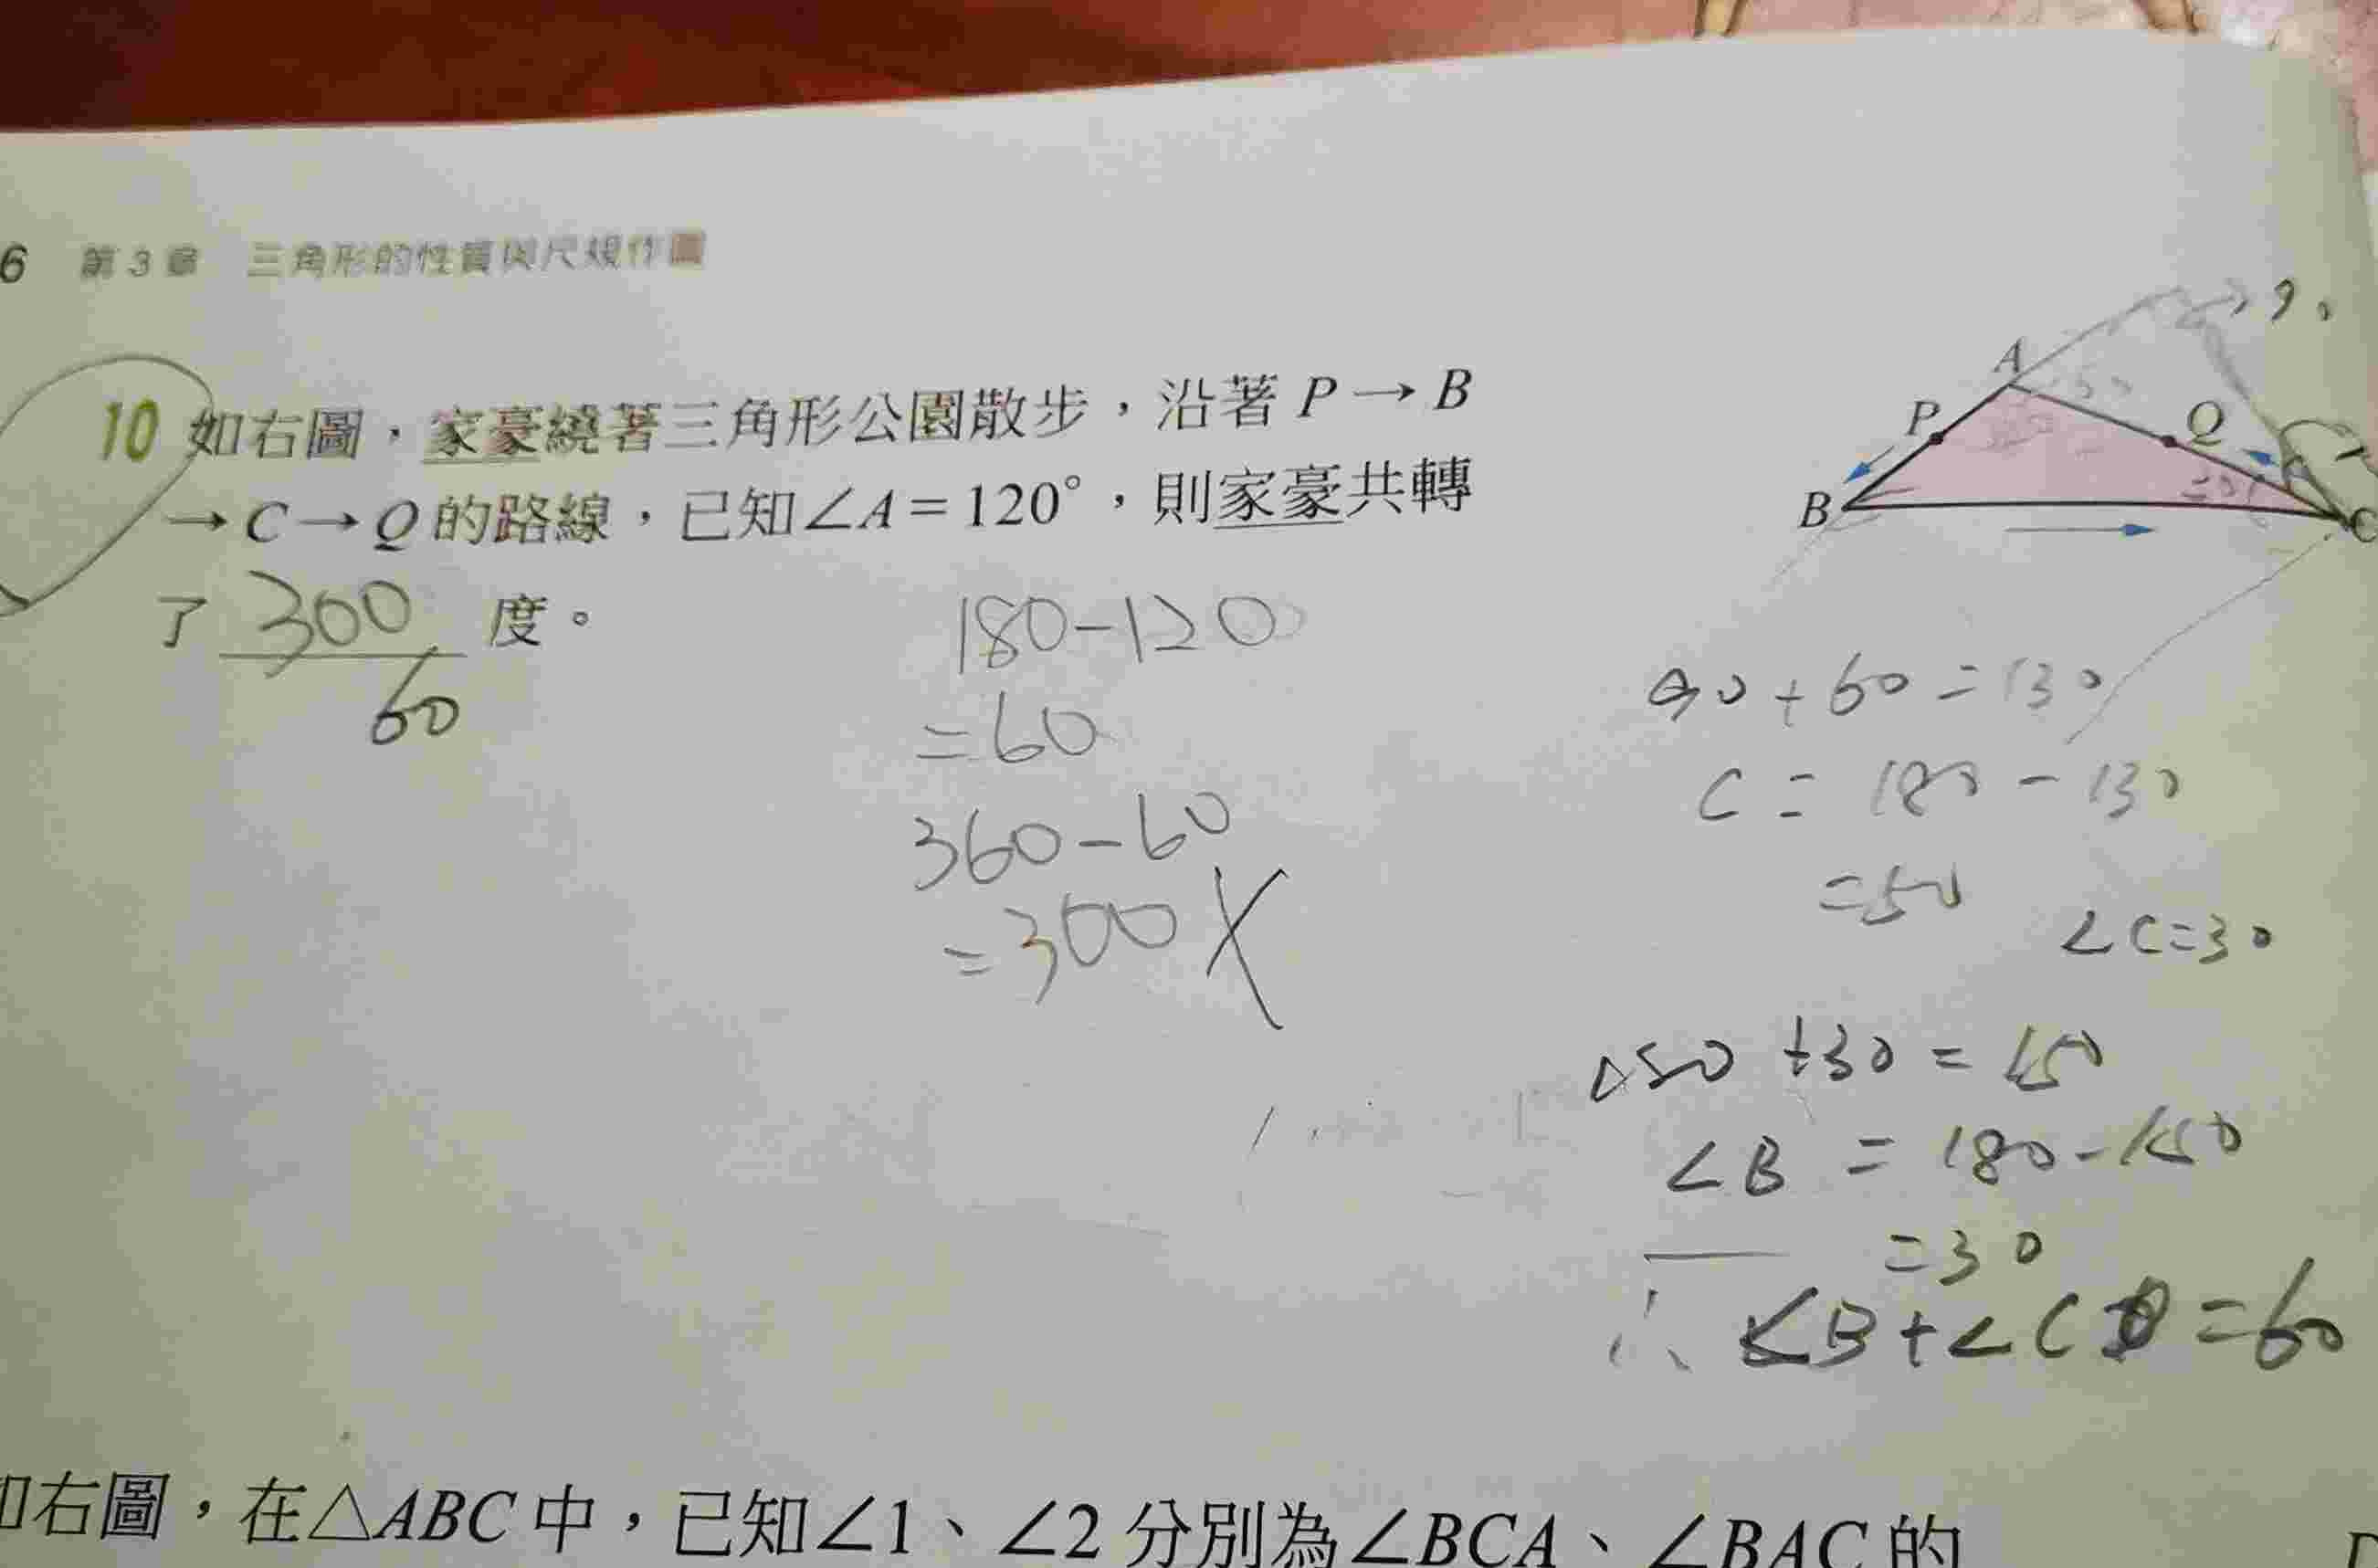 6 第3章 三角形的性質與尺規作圖
10 如右圖，家豪繞著三角形公園散步，沿著 P→B
→C→Q的路線，已知∠A=120°，則家豪共轉
了 300 度。
60
A
P
Q
B
C
180-120
=60
360-60
=300 X
90+60=130
C=180-130
=50
∠C=30
+30=150
∠B=180-150
=30
∴∠B+∠C=60
如右圖，在△ABC中，已知∠1、∠2分別為∠BCA、∠BAC的